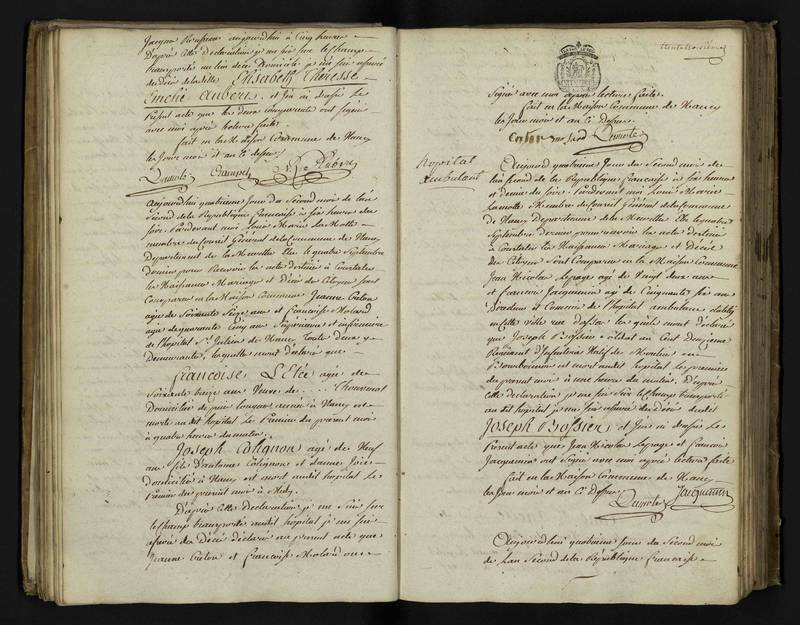 Jacques aujourd'hui à Cinq heures
D'après cette déclaration je me suis sur le champ
transporté au lieu du dit Domicile je me suis assuré
du décès de ladite Elisabeth Theresse
Emelie Aubert. et j'en ai dressé Le
Présent acte que les deux comparants ont signés
avec moi après lecture faite.
fait en la Maison Commune de Nancy
les Jour mois et an ci dessus
Lamotte Aubert
Aujourd'hui quatrième Jour du Second mois de l'an
Second de la République Française à six heures du
soir. Pardevant moi Louis Marie La Motte
membre du Conseil Général de la Commune de Nancy
Département de la Meurthe Elu le quatre Septembre
Dernier pour Recevoir les acte destiné à Constater
les Naissance Mariage et Décès des Citoyens sont
Comparus en la Maison Commune Jeanne
agée de Soixante Seize ans et Françoise
agée de quarante Cinq ans Infirmière
de l'hopital St Julien de Nancy toute deux y
Demeurante, lesquelle mont déclaré que
françoise L'Eté agée de
Soixante treize ans Veuve de ... Thouvenot
Domicilié de puis longues année à Nancy est
morte audit hopital Le Premier du présent mois
à quatre heures du matin.
Joseph Colignon agé de Neuf
ans fils d'antoine Colignon et
domicilié à Nancy est mort audit hopital le
Premier du présent mois à Midy.
D'après Cette Déclaration je me suis sur
le champ transporté audit hopital je me suis
assuré des Décès déclaré au présent acte que
Jeanne et francoise ont
signé avec moi après lecture faite.
fait en la Maison Commune de Nancy
les Jour mois et an ci Dessus
Lamotte
hopital
ambulant
Aujourd'hui quatrième Jour du Second mois de
l'an second de la République française à six heures
et demie du soir. Pardevant moi Louis Marie
Lamotte Membre du Conseil Général de la Commune
de Nancy Département de la Meurthe Elu le quatre
Septembre dernier pour recevoir les acte destiné
à Constater les Naissance Mariage et Décès
des Citoyens Sont Comparus en la Maison Commune
Jean Nicolas Lepage agé de Vingt deux ans
et francois Jacquemin agé de Cinquante six ans
Directeur et Commis de l'hopital ambulance établi
en cette ville rue les quels mont déclaré
que Joseph Bossier soldat au Cent Deuxieme
Régiment d'Infanterie Natif de Moulin en
Bourbonnois est mort audit hopital le premier
du présent mois à une heure du matin. D'après
cette déclaration je me suis sur le champ transporté
au dit hopital je me suis assuré du décès dudit
Joseph Bossier et j'en ai dressé Le
Présent acte que Jean Nicolas Lepage et francois
Jacquemin ont Signé avec moi après lecture faite
fait en la Maison Commune de Nancy
les Jour mois et an ci Dessus
Lamotte Jacquemin
Aujourd'hui quatrième Jour du Second mois
de L'an Second de la République française